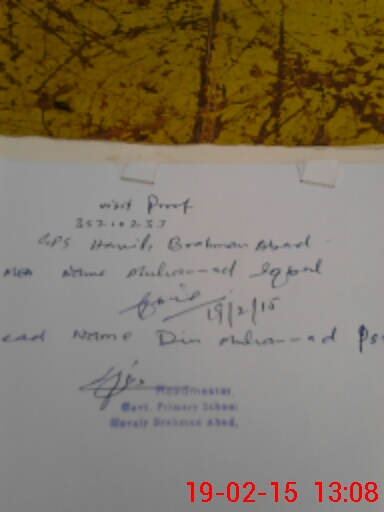 visit Proof
35210233
GPS Havily Brahman Abad
MEA Name Muhammad Iqbal
19/2/15
ead Name Din Muhammad
Headmaster,
Govt. Primary School
Havaly Brahman Abad,
19-02-15 13:08